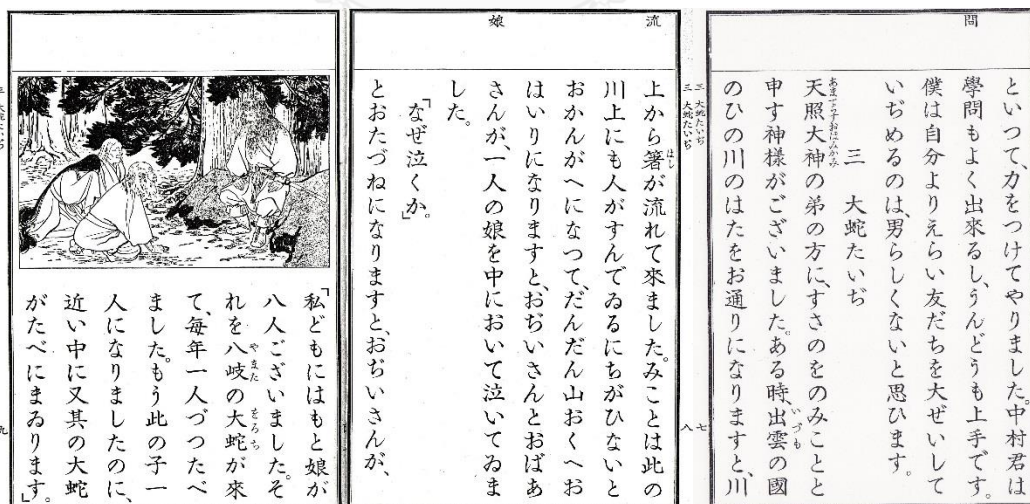 問
といつて力をつけてやりました。中村君は
學問もよく出來るし、うんどうも上手です。
僕は自分よりえらい友だちを大ぜいして
いぢめるのは、男らしくないと思ひます。
三 大蛇たいぢ
天照大神の弟の方に、すさのをのみことと
申す神様がございました。ある時、出雲の國
のひの川のはたをお通りになりますと、川
三 大蛇たいぢ
七
流
娘
三 大蛇たいぢ
八
上から箸が流れて來ました。みことは此の
川上にも人がすんでゐるにちがひないと
おかんがへになつて、だんだん山おくへお
はいりになりますと、おぢいさんとおばあ
さんが、一人の娘を中において泣いてゐま
した。
「なぜ泣くか。」
とおたづねになりますと、おぢいさんが、
「私どもにはもと娘が
八人ございました。そ
れを八岐の大蛇が來
て、毎年一人づつたべ
ました。もう此の子一
人になりましたのに、
近い中に又其の大蛇
がたべにまゐります。」
三 大蛇たいぢ
九